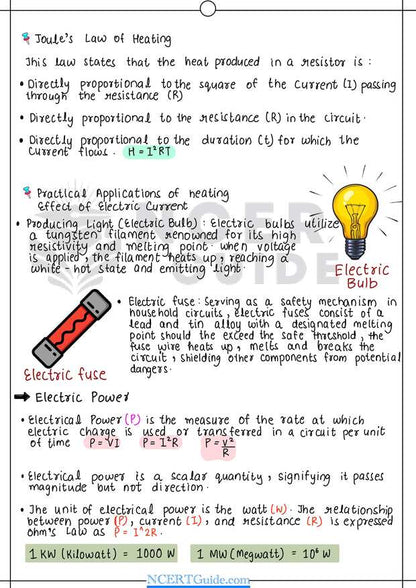 Joule's Law of Heating
This law states that the heat produced in a resistor is :
• Directly proportional to the square of the Current (I) passing
through the resistance (R)
• Directly proportional to the resistance (R) in the circuit.
• Directly proportional to the duration (t) for which the
current flows. H = I²RT
Practical Applications of heating
Effect of Electric Current
• Producing Light (Electric Bulb) : Electric bulbs utilize
a tungsten filament renowned for its high
resistivity and melting point. when voltage
is applied, the filament heats up, reaching a
white-hot state and emitting light.
Electric
Bulb
• Electric fuse : Serving as a safety mechanism in
household circuits, electric fuses consist of a
lead and tin alloy with a designated melting
point should the exceed the safe threshold, the
fuse wire heats up, melts and breaks the
circuit, shielding other components from potential
dangers.
Electric fuse
➡ Electric Power
• Electrical Power (P) is the measure of the rate at which
electric charge is used or transferred in a circuit per unit
of time P = VI P = I²R P = V²/R
• Electrical power is a scalar quantity, signifying it passes
magnitude but not direction.
• The unit of electrical power is the watt (W). The relationship
between power (P), current (I), and resistance (R) is expressed
ohm's Law as P = I^2R.
1 KW (Kilowatt) = 1000 W 1 MW (Megwatt) = 10⁶ W
NCERT
GUIDE
NCERTGuide.com